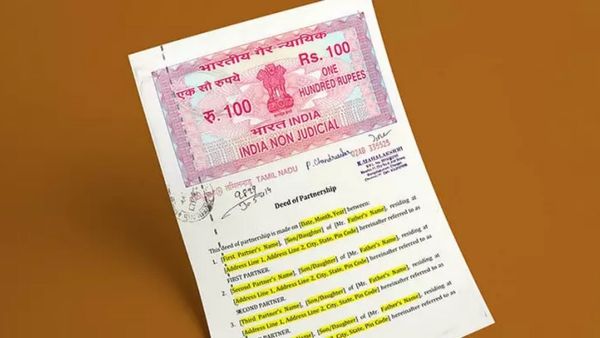 भारतीय गैर न्यायिक
एक सौ रुपये
Rs. 100
रु. 100
ONE
HUNDRED RUPEES
भारत INDIA
INDIA NON JUDICIAL
TAMIL NADU
02AB 335525
K.MAHALAKSHMI
Deed of Partnership
This deed of partnership is made on [Date, Month, Year] between:
1. [First Partner's Name], [Son/Daughter] of [Mr. Father's Name], residing at
[Address Line 1, Address Line 2, City, State, Pin Code] hereinafter referred to as
FIRST PARTNER.
2. [Second Partner's Name], [Son/Daughter] of [Mr. Father's Name], residing at
[Address Line 1, Address Line 2, City, State, Pin Code] hereinafter referred to as
SECOND PARTNER.
3. [Third Partner's Name], [Son/Daughter] of [Mr. Father's Name], residing at
[Address Line 1, Address Line 2, City, State, Pin Code] hereinafter referred to as